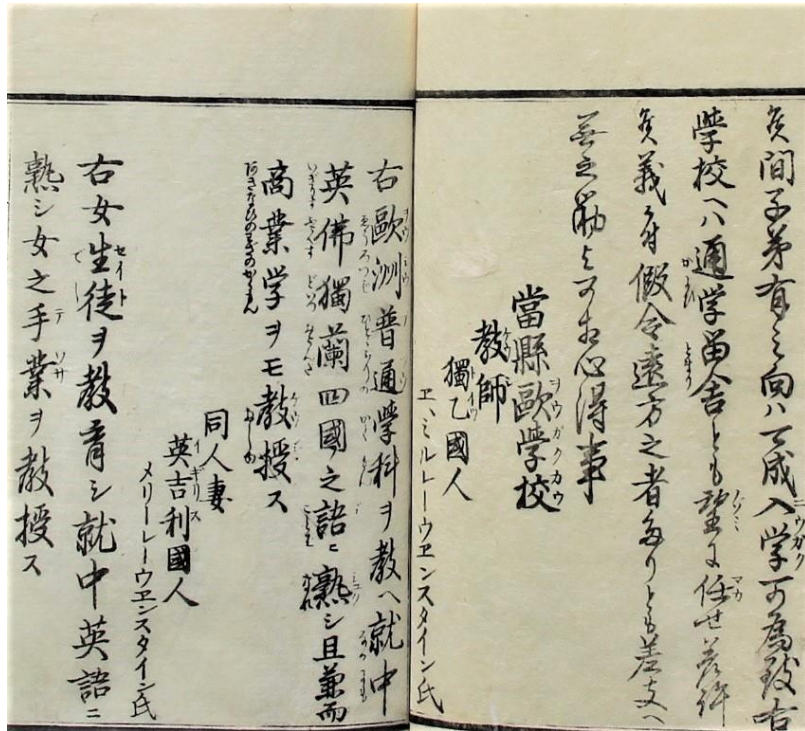 候間子弟有之向ハ可成入学可為致右
学校ヘハ通学留舎とも望に任せ差許
候義ニ付假令遠方之者たりとも差支ヘ
無之筋と可相心得事
當縣歐学校
教師
獨乙國人
エ、ミルレーウヱンスタイン氏
右歐洲普通學科ヲ教ヘ就中
英佛獨蘭四國之語ニ熟シ且兼而
商業学ヲモ教授ス
同人妻
英吉利國人
メリーレーウヱンスタイン氏
右女生徒ヲ教育シ就中英語ニ
熟シ女之手業ヲ教授ス